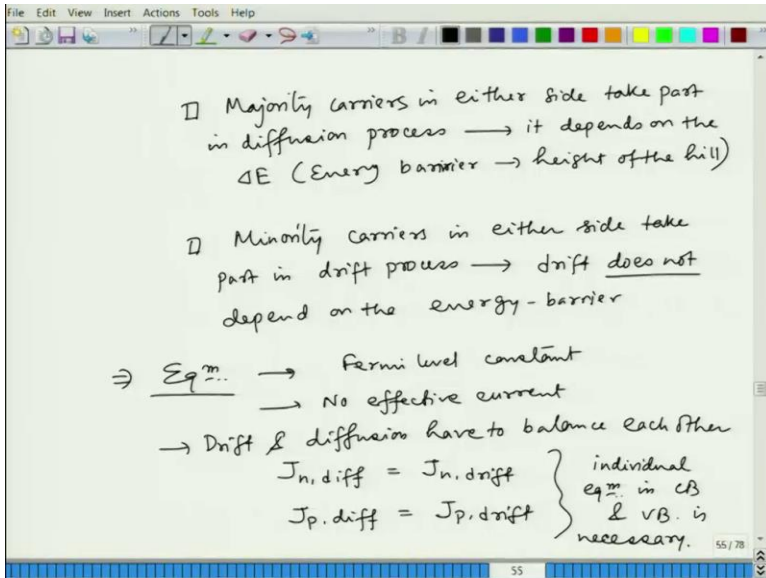 File Edit View Insert Actions Tools Help
B I
□ Majority carriers in either side take part
in diffusion process → it depends on the
ΔE (Energy barrier → height of the hill)
□ Minority carriers in either side take
part in drift process → drift does not
depend on the energy-barrier
⇒ Eqm. → Fermi level constant
→ No effective current
→ Drift & diffusion have to balance each other
Jn, diff = Jn, drift } individual
Jp. diff = Jp, drift eqm. in CB
& VB. is
necessary.
55 / 78
55